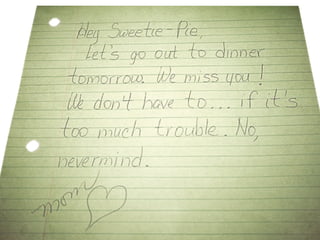 Hey Sweetie-Pie,
Let's go out to dinner
tomorrow. We miss you!
We don't have to... if it's
too much trouble. No,
nevermind.
mom